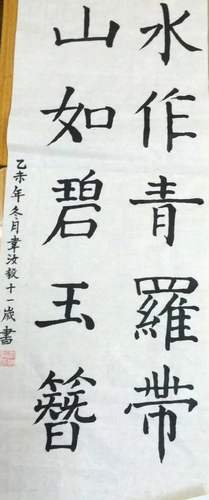 水作青羅帶
山如碧玉簪
乙未年冬月韋汝毅十一歲書